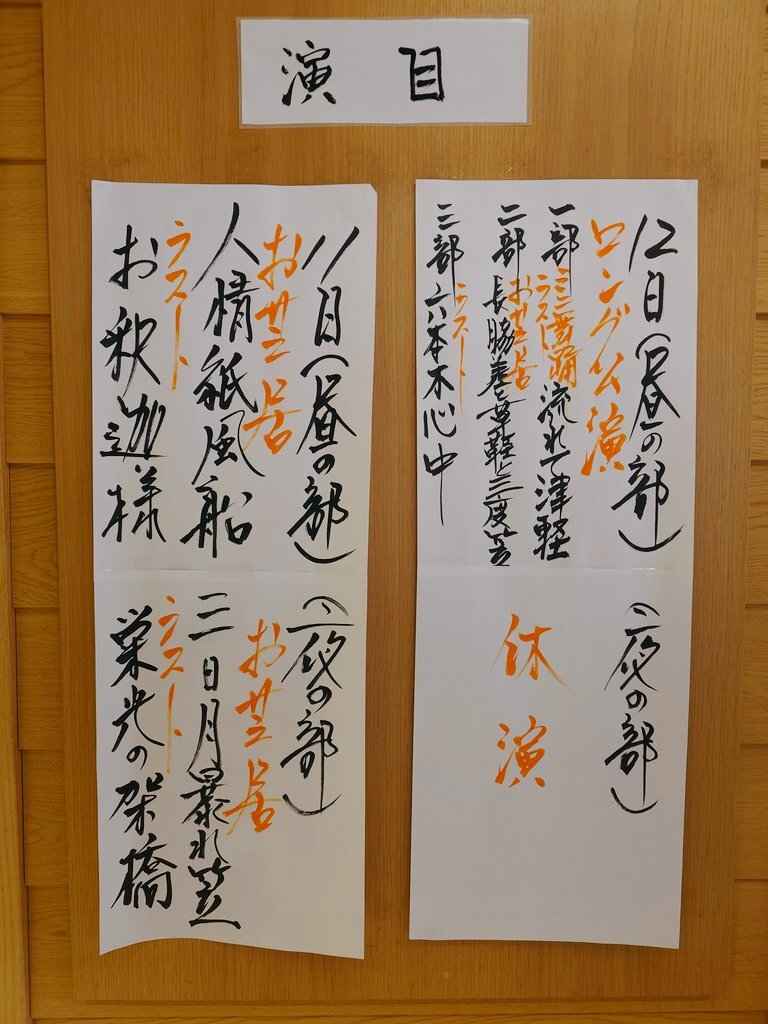 演目
12日(昼の部)
ロング公演
一部 ミニ舞踊
ラスト 流れて津軽
二部 お芝居
長脇差と草鞋と三度笠
三部 ラスト
六本木心中
(夜の部)
休演
11日(昼の部)
お芝居
人情紙風船
ラスト
お釈迦様
(夜の部)
お芝居
三日月暴れ笠
ラスト
栄光の架橋